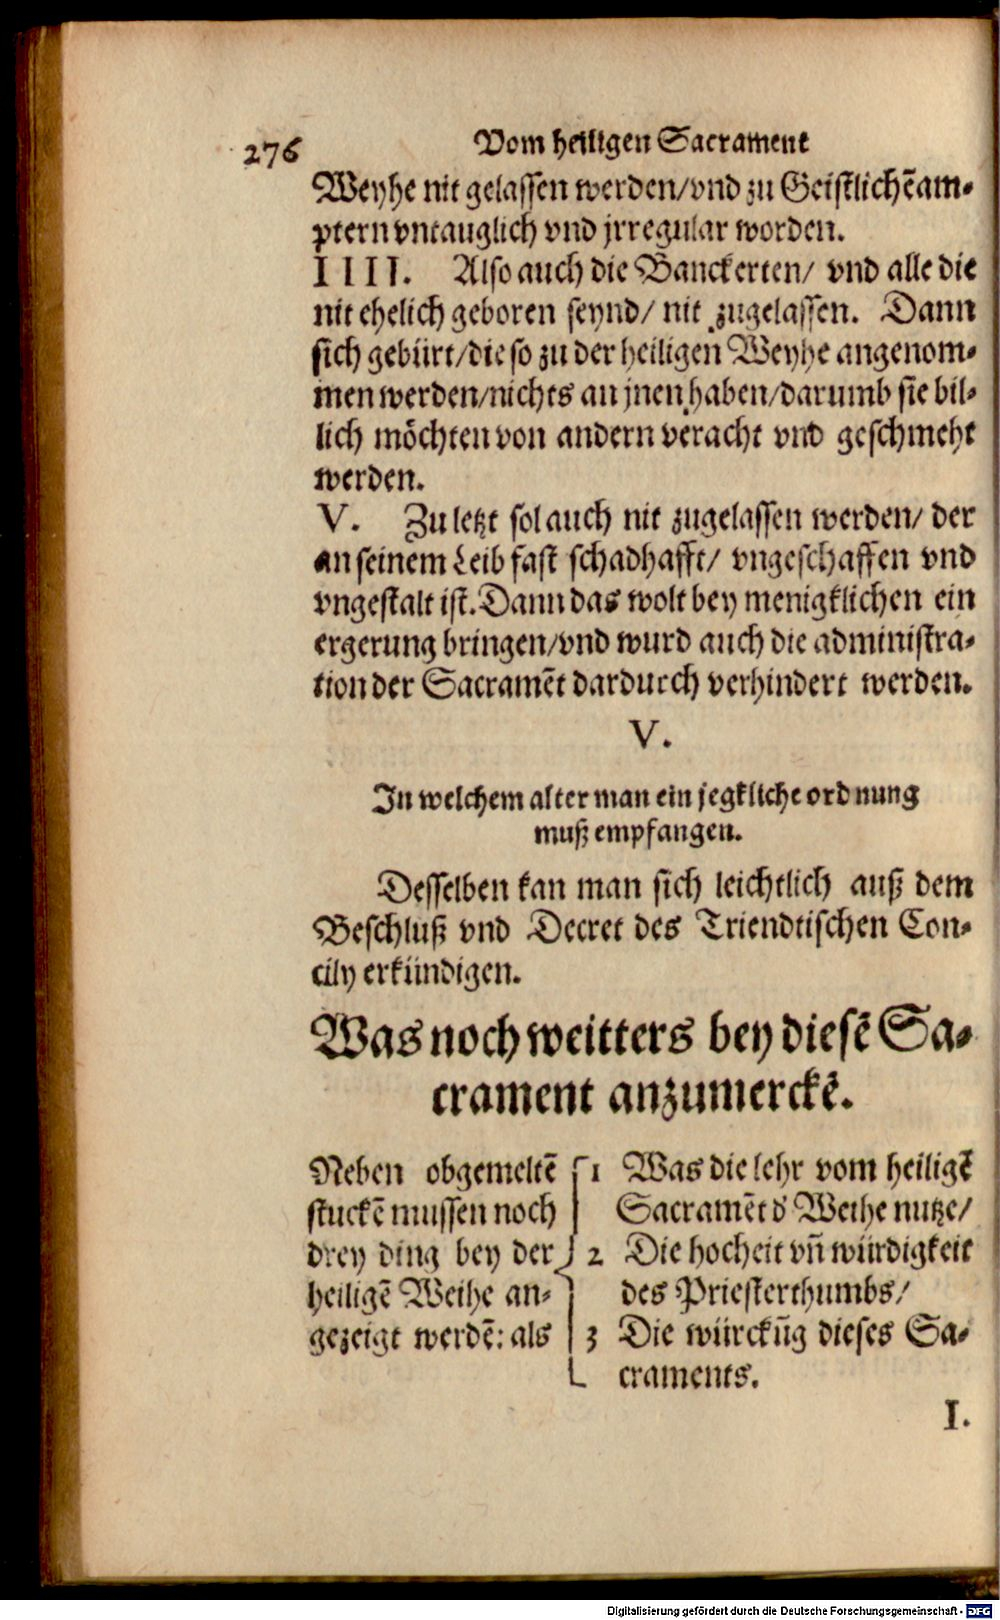 276 Vom heiligen Sacrament
Weyhe nit gelassen werden/vnd zu Geistlichẽ am-
ptern vntauglich vnd jrregular worden.
IIII. Also auch die Banckerten/ vnd alle die
nit ehelich geboren seynd/ nit zugelassen. Dann
sich gebürt/die so zu der heiligen Weyhe angenom-
men werden/nichts an jnen haben/darumb sie bil-
lich möchten von andern veracht vnd geschmeht
werden.
V. Zu letzt sol auch nit zugelassen werden/ der
an seinem Leib fast schadhafft/ vngeschaffen vnd
vngestalt ist. Dann das wolt bey menigklichen ein
ergerung bringen/vnd wurd auch die administra-
tion der Sacramẽt dardurch verhindert werden.
V.
In welchem alter man ein jegkliche ordnung
muß empfangen.
Desselben kan man sich leichtlich auß dem
Beschluß vnd Decret des Triendtischen Con-
cily erkündigen.
Was noch weitters bey diesẽ Sa-
crament anzumerckẽ.
Neben obgemeltẽ
stuckẽ mussen noch
drey ding bey der
heiligẽ Weihe an-
gezeigt werdẽ: als
1 Was die lehr vom heiligẽ
Sacramẽt d' Weihe nutze/
2 Die hocheit vñ würdigkeit
des Priesterthumbs/
3 Die würckũg dieses Sa-
craments.
I.
Digitalisierung gefördert durch die Deutsche Forschungsgemeinschaft - DFG